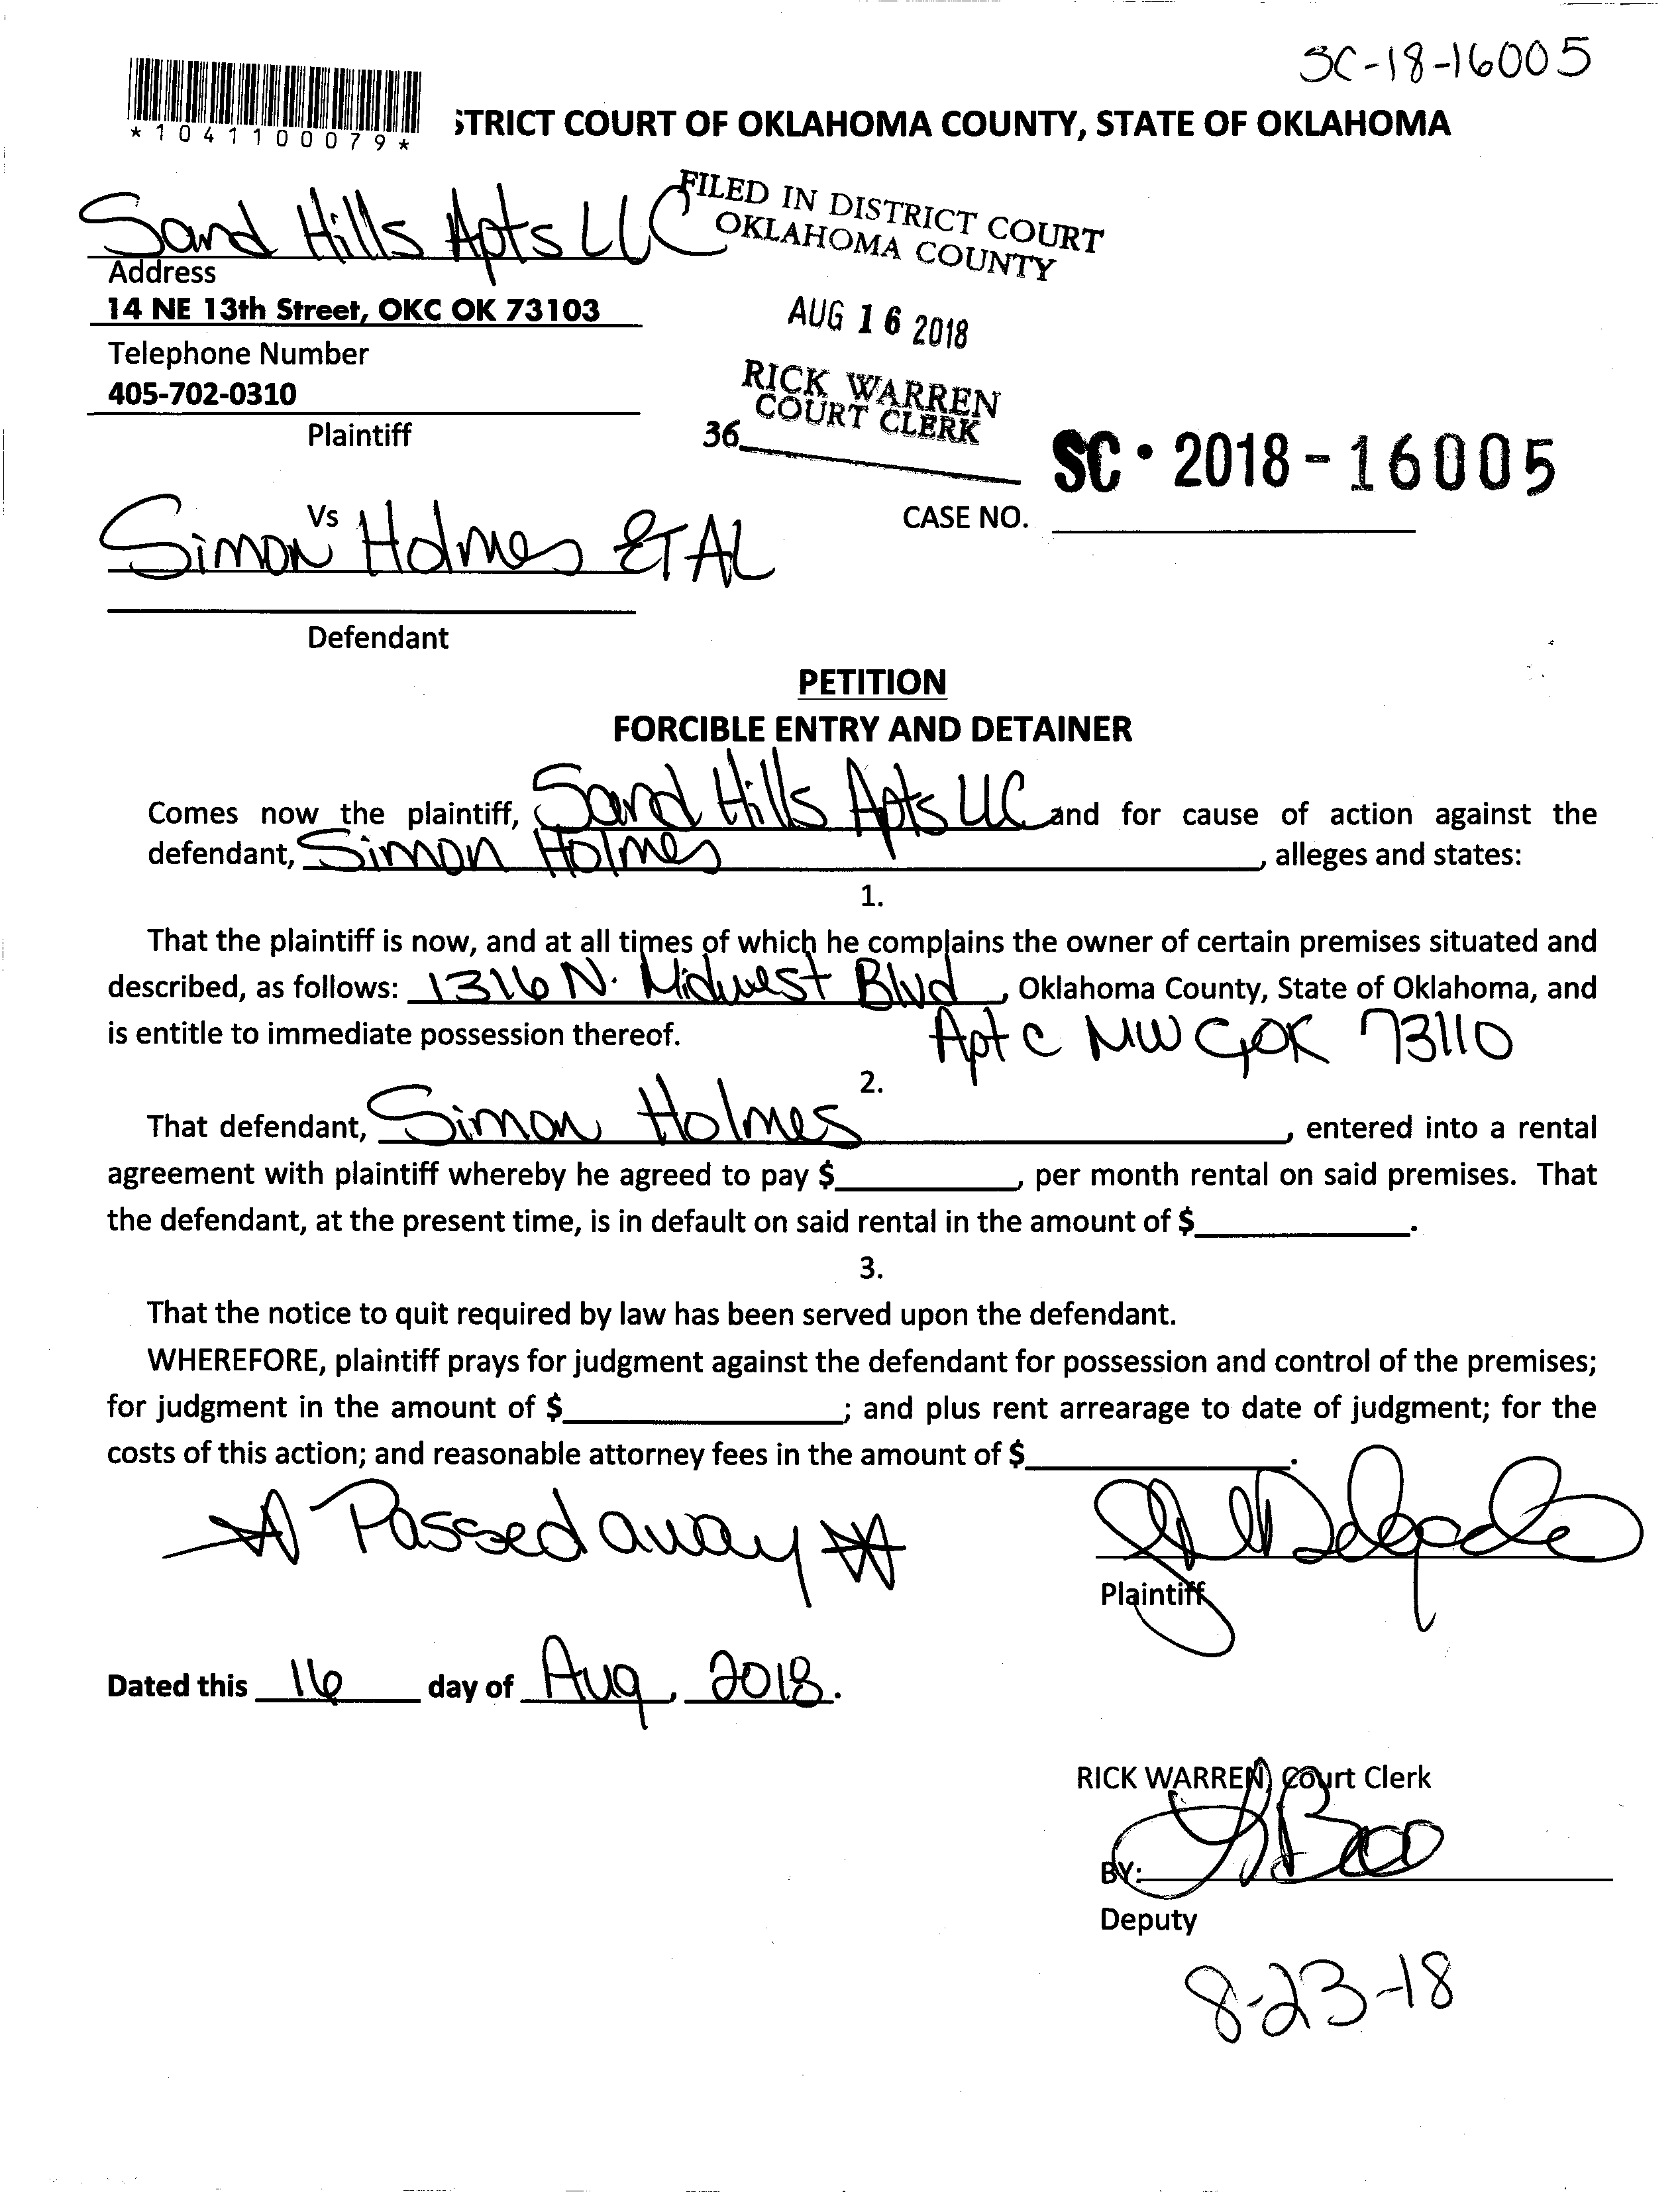 SC-18-16005
*1041100079*
STRICT COURT OF OKLAHOMA COUNTY, STATE OF OKLAHOMA
Sand Hills Apts LLC
FILED IN DISTRICT COURT
OKLAHOMA COUNTY
Address
14 NE 13th Street, OKC OK 73103
AUG 16 2018
Telephone Number
405-702-0310
RICK WARREN
COURT CLERK
Plaintiff
36
SC • 2018-16005
Vs
CASE NO.
Simon Holmes ET AL
Defendant
PETITION
FORCIBLE ENTRY AND DETAINER
Comes now the plaintiff, Sand Hills Apts LLC and for cause of action against the
defendant, Simon Holmes, alleges and states:
1.
That the plaintiff is now, and at all times of which he complains the owner of certain premises situated and
described, as follows: 1316 N. Midwest Blvd, Oklahoma County, State of Oklahoma, and
is entitle to immediate possession thereof. Apt C MW Cy OK 73110
2.
That defendant, Simon Holmes, entered into a rental
agreement with plaintiff whereby he agreed to pay $__________, per month rental on said premises. That
the defendant, at the present time, is in default on said rental in the amount of $__________.
3.
That the notice to quit required by law has been served upon the defendant.
WHEREFORE, plaintiff prays for judgment against the defendant for possession and control of the premises;
for judgment in the amount of $__________; and plus rent arrearage to date of judgment; for the
costs of this action; and reasonable attorney fees in the amount of $__________.
Passed away
Delgado
Plaintiff
Dated this 16 day of Aug, 2018.
RICK WARREN, Court Clerk
BY:
Deputy
8-23-18